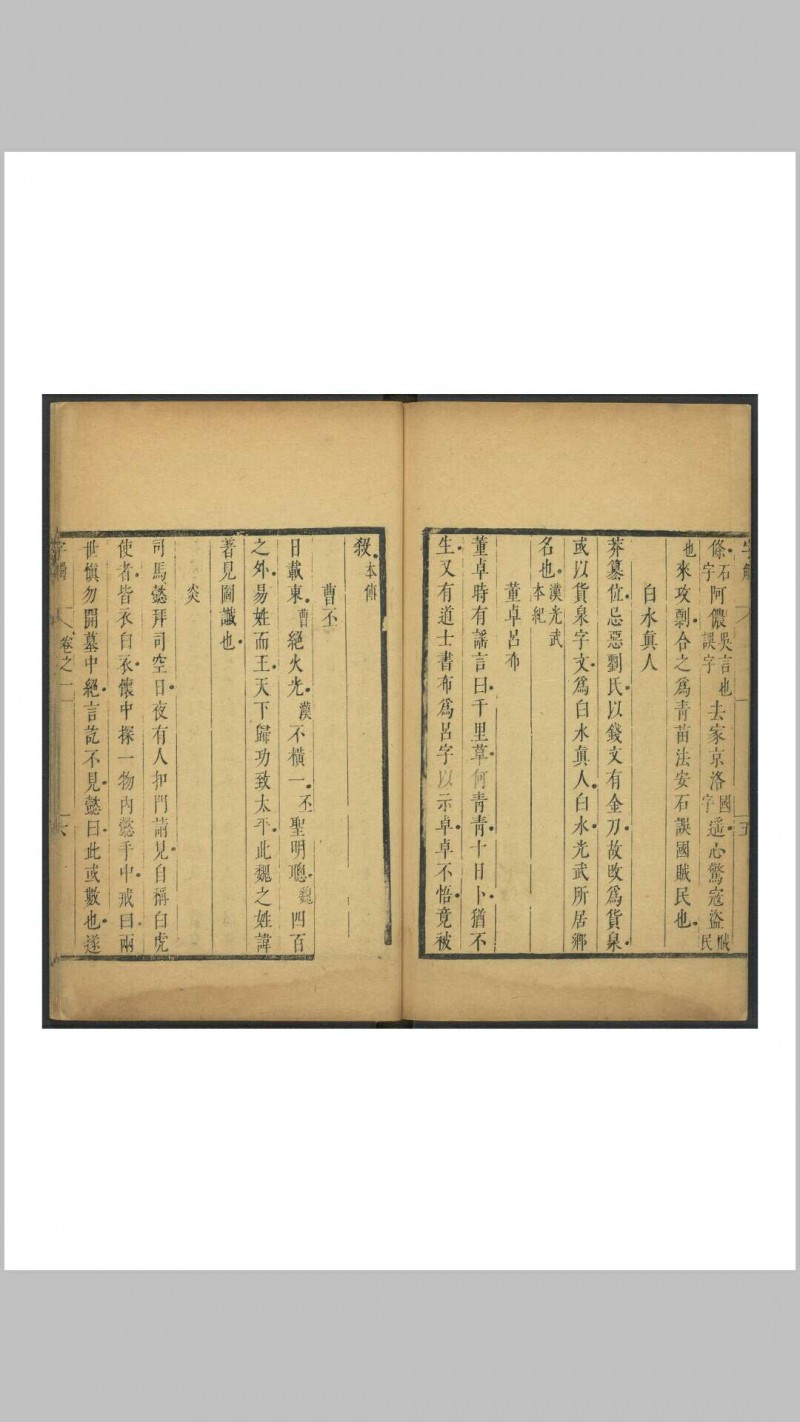 條石字阿儂吳言也誤字去家京洛國字遥心驚寇盜賊民
也來攻剽合之爲青苗法安石誤國賊民也
白水眞人
莽簒位忌惡劉氏以錢文有金刀故改爲貨泉
或以貨泉字文爲白水眞人白水光武所居鄉
名也漢光武本紀
董卓呂布
董卓時有謡言曰千里草何青青十日卜猶不
生又有道士書布爲呂字以示卓卓不悟竟被
殺本傳
曹丕
日載東曹絕火光漢不橫一丕聖明聰魏四百
之外易姓而王天下歸功致太平此魏之姓諱
著見圖讖也
炎
司馬懿拜司空日夜有人扣門請見自稱白虎
使者皆衣白衣懷中探一物内懿手中戒曰兩
世愼勿開墓中絕言訖不見懿曰此或數也遂
字觸 卷之一 六
字觸 五